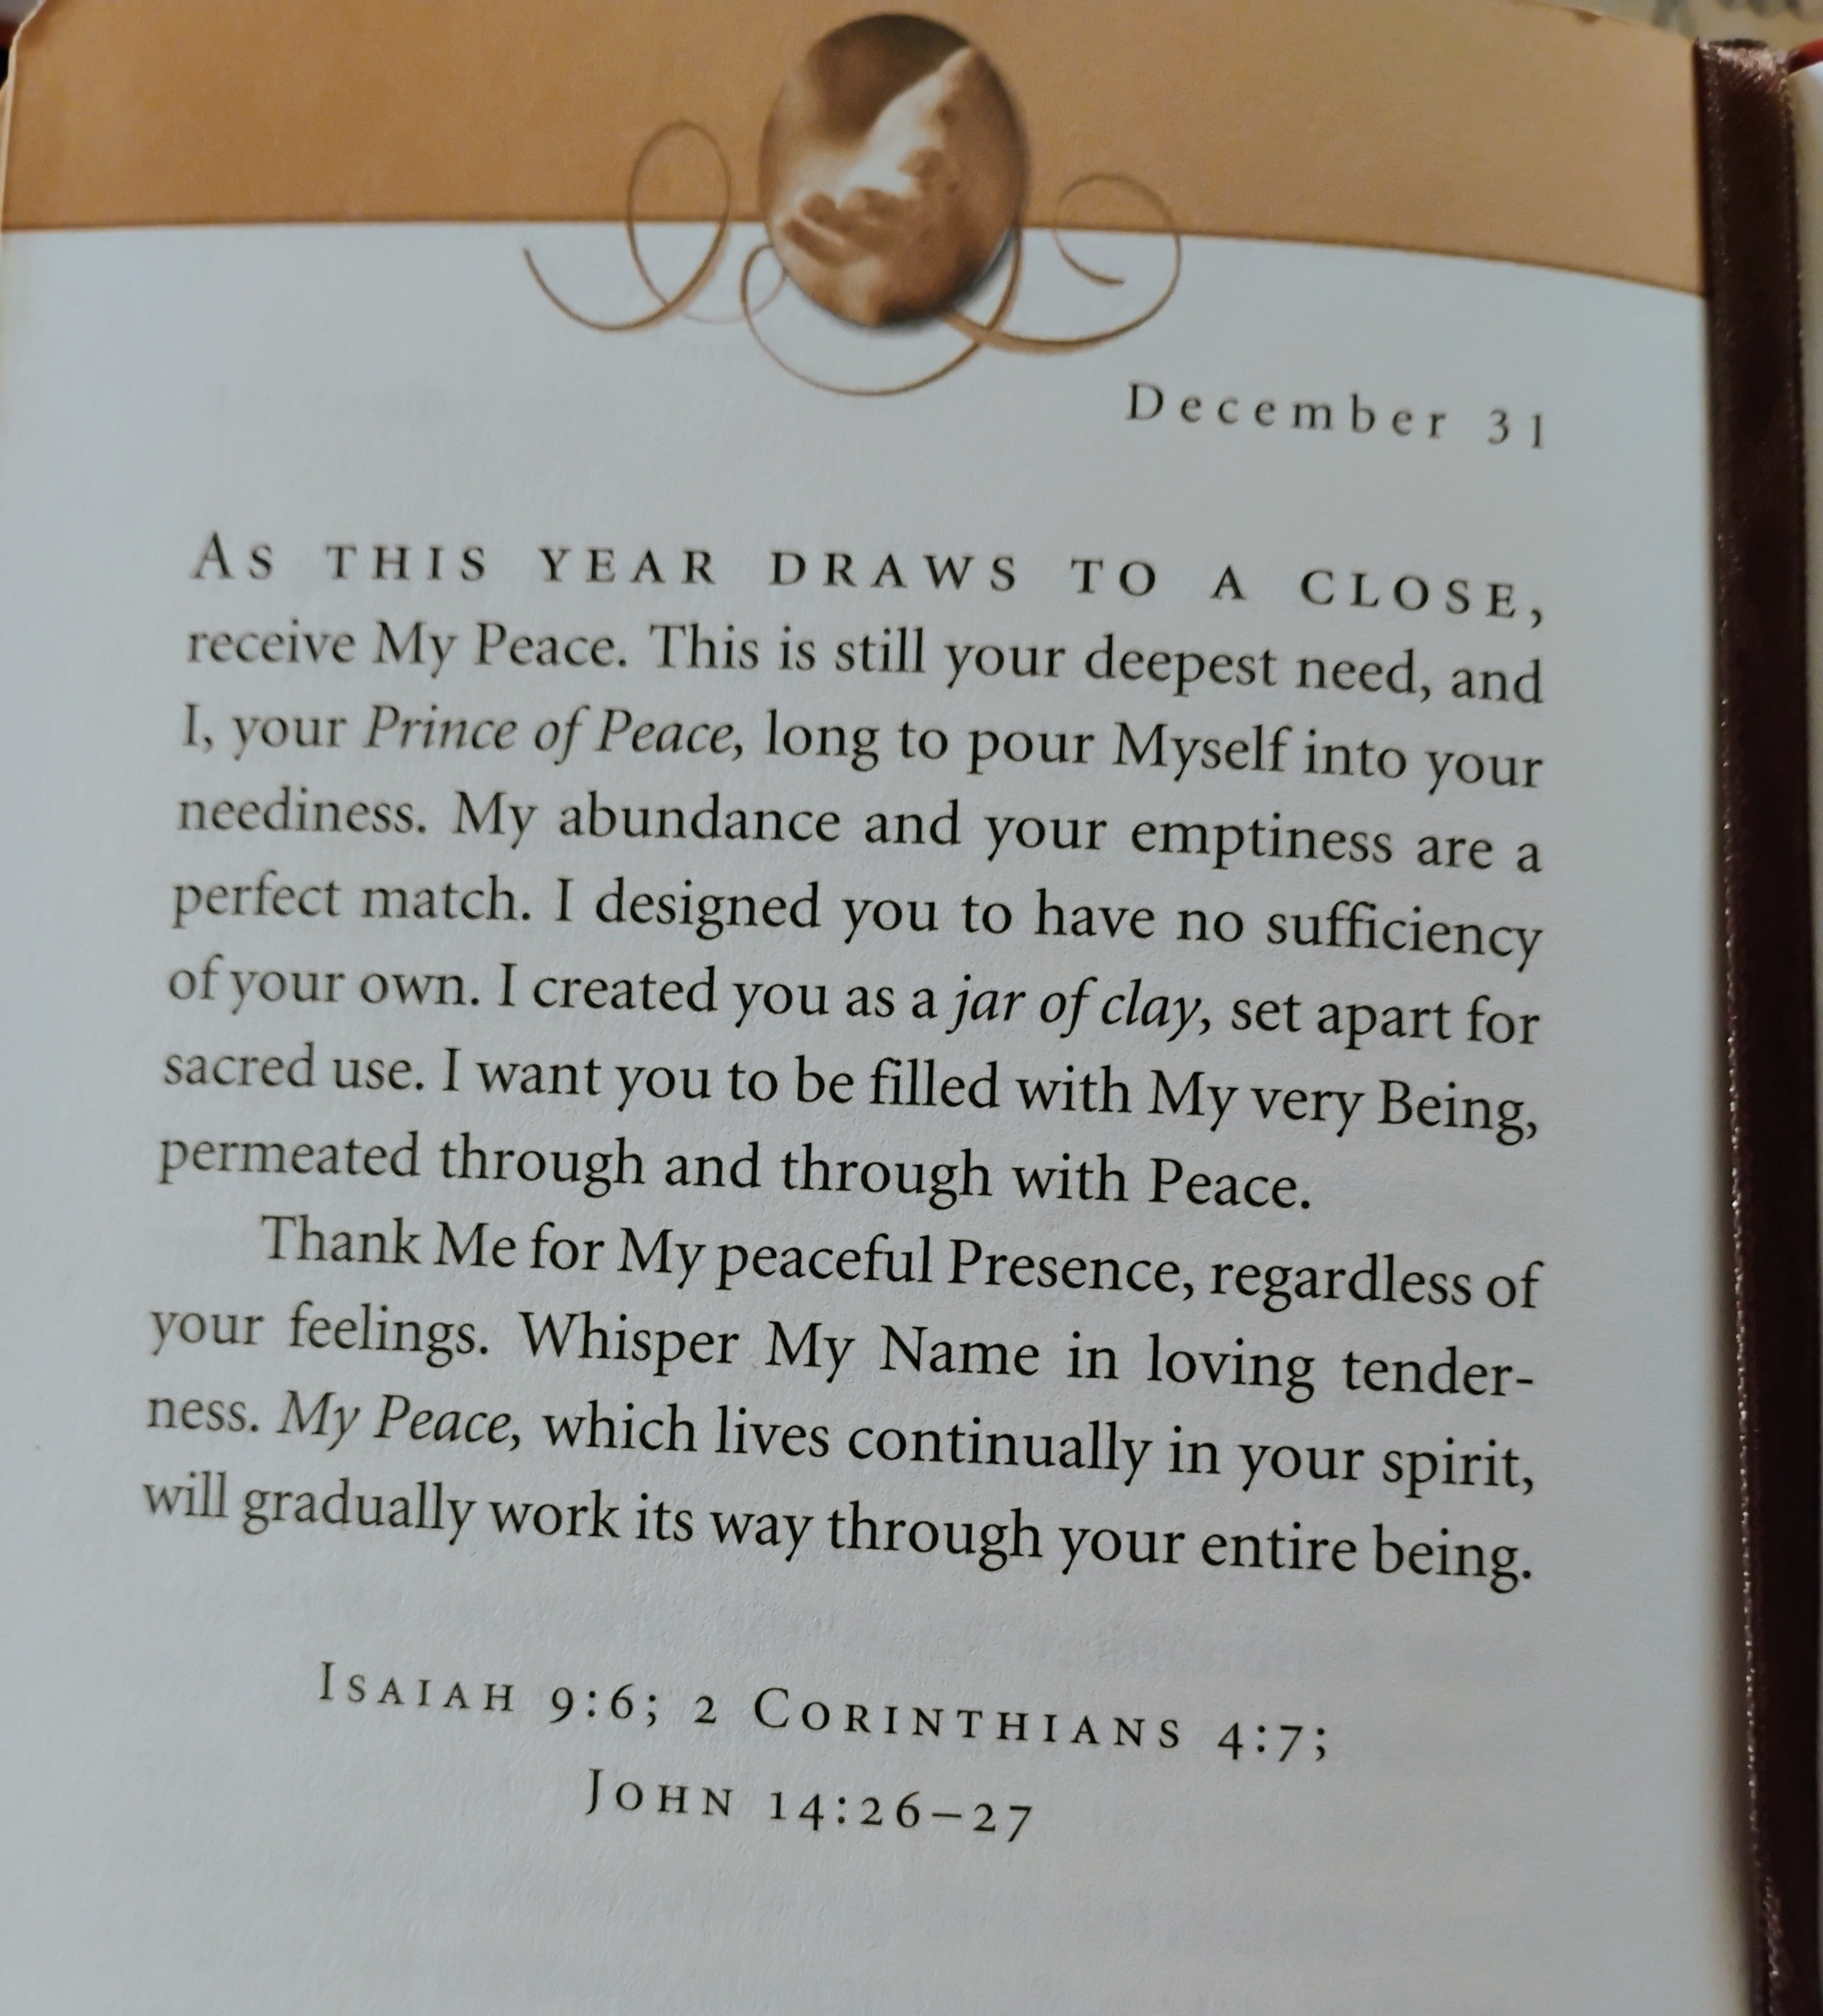 December 31
As this year draws to a close,
receive My Peace. This is still your deepest need, and
I, your Prince of Peace, long to pour Myself into your
neediness. My abundance and your emptiness are a
perfect match. I designed you to have no sufficiency
of your own. I created you as a jar of clay, set apart for
sacred use. I want you to be filled with My very Being,
permeated through and through with Peace.
Thank Me for My peaceful Presence, regardless of
your feelings. Whisper My Name in loving tender-
ness. My Peace, which lives continually in your spirit,
will gradually work its way through your entire being.
Isaiah 9:6; 2 Corinthians 4:7;
John 14:26–27